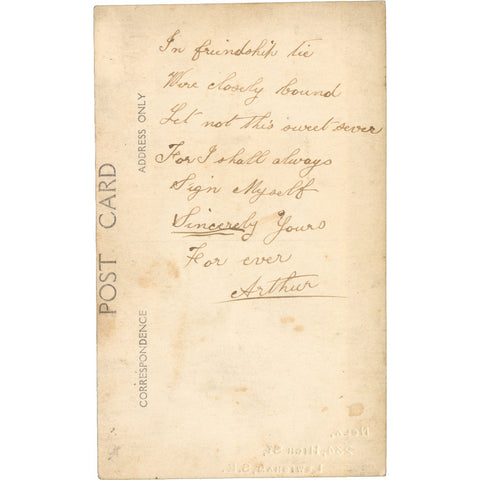 In friendship tie
We're closely bound
Let not this sweet sever
For I shall always
Sign Myself
Sincerely Yours
For ever
Arthur
POST CARD
CORRESPONDENCE
ADDRESS ONLY
High St,
Lewisham, S.E.